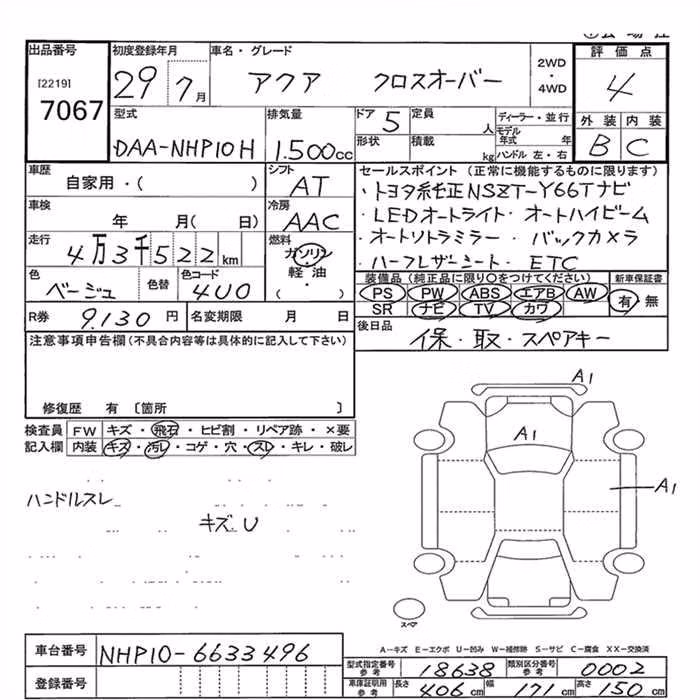 出品番号 初度登録年月 車名・グレード 2WD・4WD 評価点
[2219] 29 7月 アクア クロスオーバー 4
7067
型式 排気量 ドア 5 定員 人 ディーラー・並行 外装 内装
DAA-NHP10H 1.500cc 形状 積載 kg モデル年式 年 ハンドル 左・右 B C
車歴 自家用・( ) シフト AT セールスポイント (正常に機能するものに限ります)
・トヨタ純正NSZT-Y66Tナビ
車検 年 月( 日) 冷房 AAC ・LEDオートライト・オートハイビーム
走行 4万3千522km 燃料 ガソリン ・オートソトラミラー・バックカメラ
軽油 ・ハーフレザーシート・ETC
( )
色 ベージュ 色替 色コード 4U0 装備品 (純正品に限り○をつけてください) 新車保証書
PS PW ABS エアB AW 有・無
SR ナビ TV カワ
R券 9.130円 名変期限 月 日 後日品 保・取・スペアキー
注意事項申告欄(不具合内容等は具体的に記入して下さい)
修復歴 有 〔箇所 〕
検査員 FW キズ・飛石・ヒビ割・リペア跡・×要
記入欄 内装 キズ・汚レ・コゲ・穴・スレ・キレ・破レ
A1
A1
A1
ハンドルスレ
キズU
スペア
A-キズ E-エクボ U-凹み W-補修跡 S-サビ C-腐食 XX-交換済
車台番号 NHP10-6633496
登録番号
型式指定番号 参考 18638 類別区分番号 参考 0002
車庫証明用 参考 長さ 406cm 幅 171cm 高さ 150cm